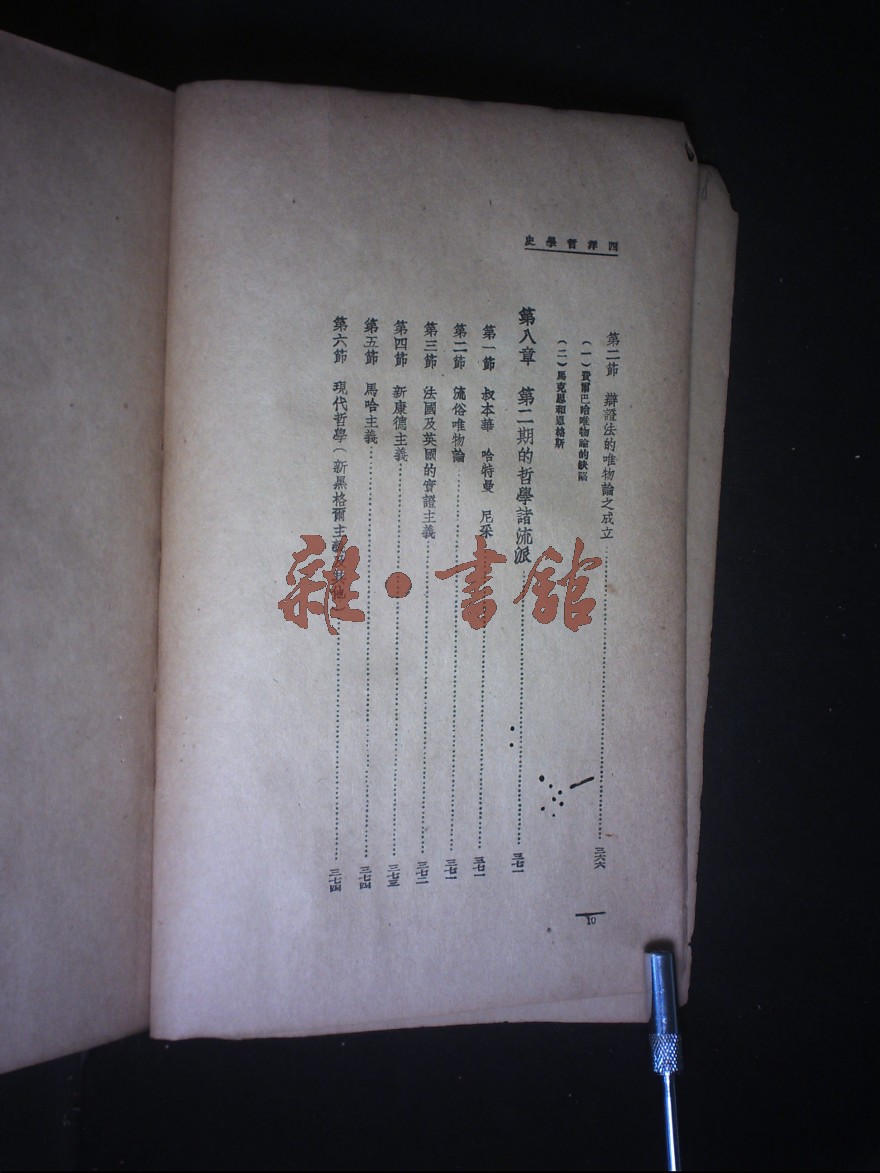 西洋哲學史
第二節 辯證法的唯物論之成立……三六六
（一）費爾巴哈唯物論的缺陷
（二）馬克思和恩格斯
第八章 第二期的哲學諸流派……三七一
第一節 叔本華 哈特曼 尼采……三七一
第二節 流俗唯物論……三七一
第三節 法國及英國的實證主義……三七二
第四節 新康德主義……三七三
第五節 馬哈主義……三七四
第六節 現代哲學（新黑格爾主義及其他）……三七四
10
雜·書館